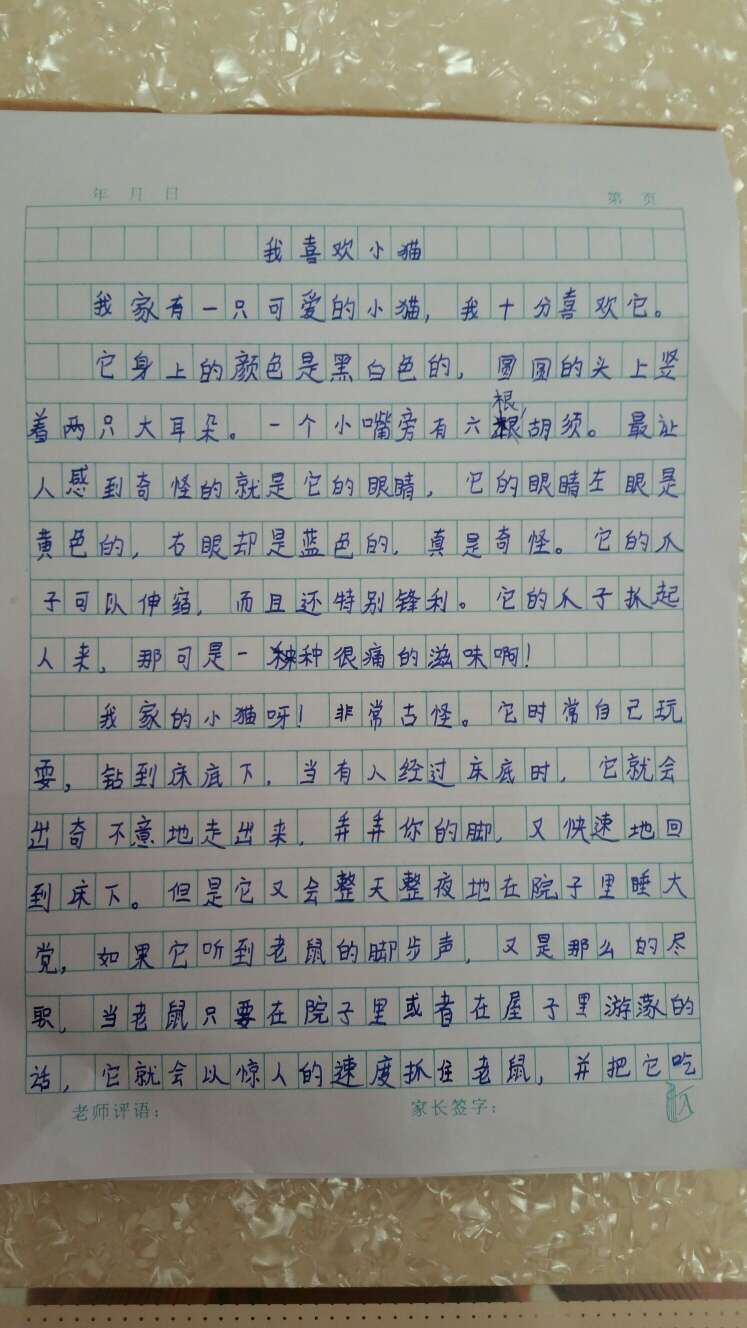 年 月 日
第 页
我喜欢小猫
我家有一只可爱的小猫，我十分喜欢它。
它身上的颜色是黑白色的，圆圆的头上竖
着两只大耳朵。一个小嘴旁有六根胡须。最让
人感到奇怪的就是它的眼睛，它的眼睛左眼是
黄色的，右眼却是蓝色的，真是奇怪。它的爪
子可以伸缩，而且还特别锋利。它的爪子抓起
人来，那可是一种很痛的滋味啊！
我家的小猫呀！非常古怪。它时常自己玩
耍，钻到床底下，当有人经过床底时，它就会
出奇不意地走出来，弄弄你的脚，又快速地回
到床下。但是它又会整天整夜地在院子里睡大
觉，如果它听到老鼠的脚步声，又是那么的尽
职，当老鼠只要在院子里或者在屋子里游荡的
话，它就会以惊人的速度抓住老鼠，并把它吃
老师评语：
家长签字：